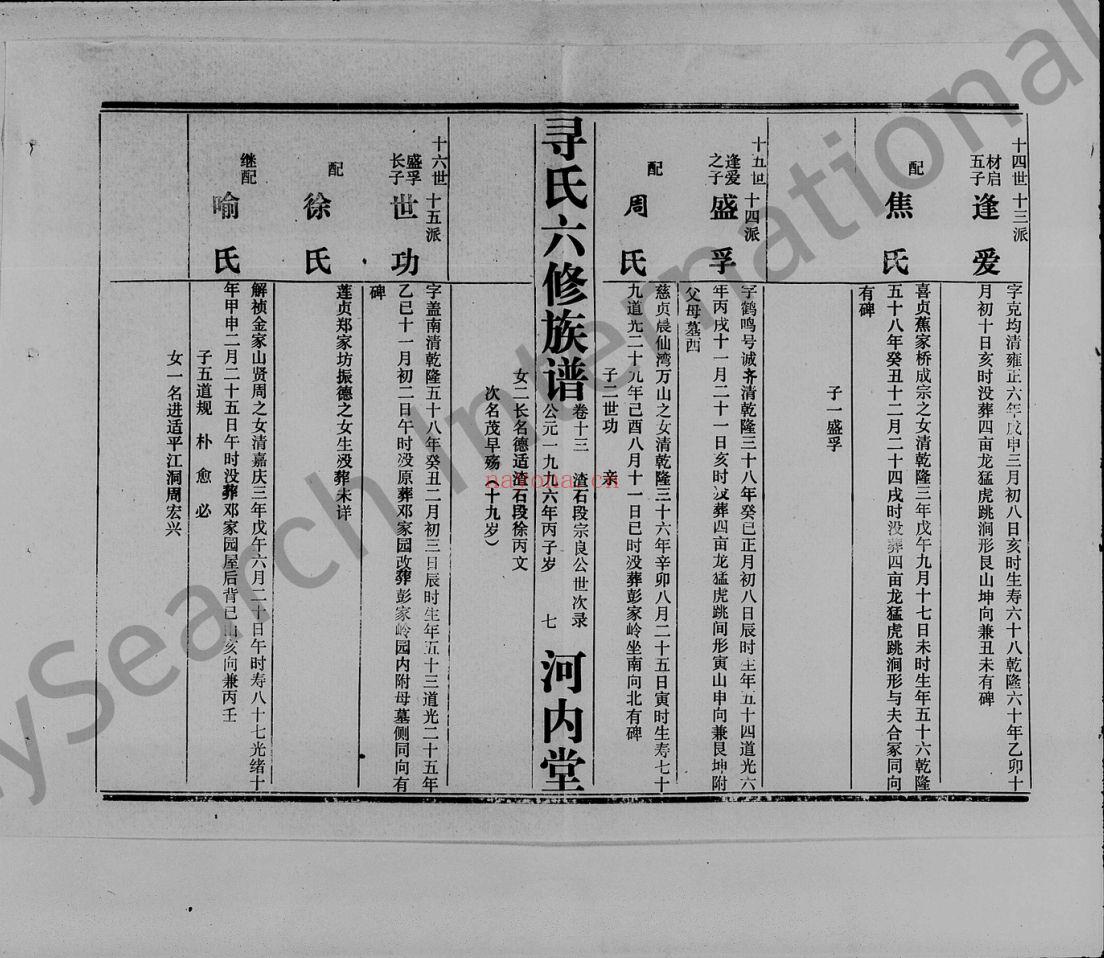 十四世 十三派
材启
五子
逢爱
字克均清雍正六年戊申三月初八日亥时生寿六十八乾隆六十年乙卯十
月初十日亥时没葬四亩龙猛虎跳涧形艮山坤向兼丑未有碑
配
焦氏
喜贞蕉家桥成宗之女清乾隆三年戊午九月十七日未时生年五十六乾隆
五十八年癸丑十二月二十四戌时没葬四亩龙猛虎跳涧形与夫合冢同向
有碑
子一盛孚
十五世 十四派
逢爱
之子
盛孚
字鹤鸣号诚齐清乾隆三十八年癸巳正月初八日辰时生年五十四道光六
年丙戌十一月二十一日亥时没葬四亩龙猛虎跳间形寅山申向兼艮坤附
父母墓西
配
周氏
慈贞晨仙湾万山之女清乾隆三十六年辛卯八月二十五日寅时生寿七十
九道光二十九年己酉八月十一日巳时没葬彭家岭坐南向北有碑
子二世功 亲
寻氏六修族谱
卷十三 渣石段宗良公世次录
公元一九九六年丙子岁 七
河内堂
女二长名德适渣石段徐丙文
次名茂早殇（十九岁）
十六世 十五派
盛孚
长子
世功
字盖南清乾隆五十八年癸丑二月初三日辰时生年五十三道光二十五年
乙巳十一月初二日午时没原葬邓家园改葬彭家岭园内附母墓侧同向有
碑
配
徐氏
莲贞郑家坊振德之女生没葬未详
继配
喻氏
解祯金家山贤周之女清嘉庆三年戊午六月二十日午时寿八十七光绪十
年甲申二月二十五日午时没葬邓家园屋后背巳山亥向兼丙壬
子五道规 朴 愈 必
女一名进适平江洞周宏兴
nayona.cn
MySearch International